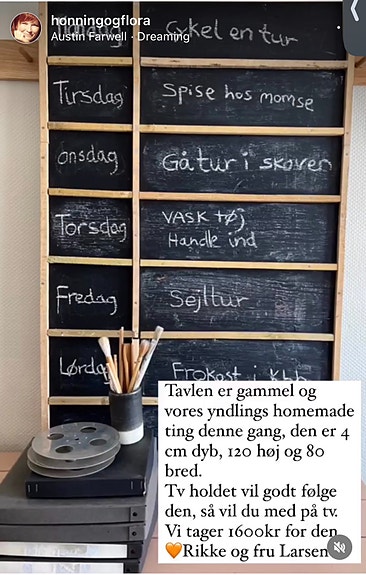 honningogflora
Austin Farwell · Dreaming
Cykel en tur
Tirsdag
Spise hos momse
onsdag
Gå tur i skoven
Torsdag
VASK tøj
Handle ind
Fredag
Sejltur
Lørdag
Frokost i kbh
Tavlen er gammel og
vores yndlings homemade
ting denne gang, den er 4
cm dyb, 120 høj og 80
bred.
Tv holdet vil godt følge
den, så vil du med på tv.
Vi tager 1600kr for den
🧡Rikke og fru Larsen